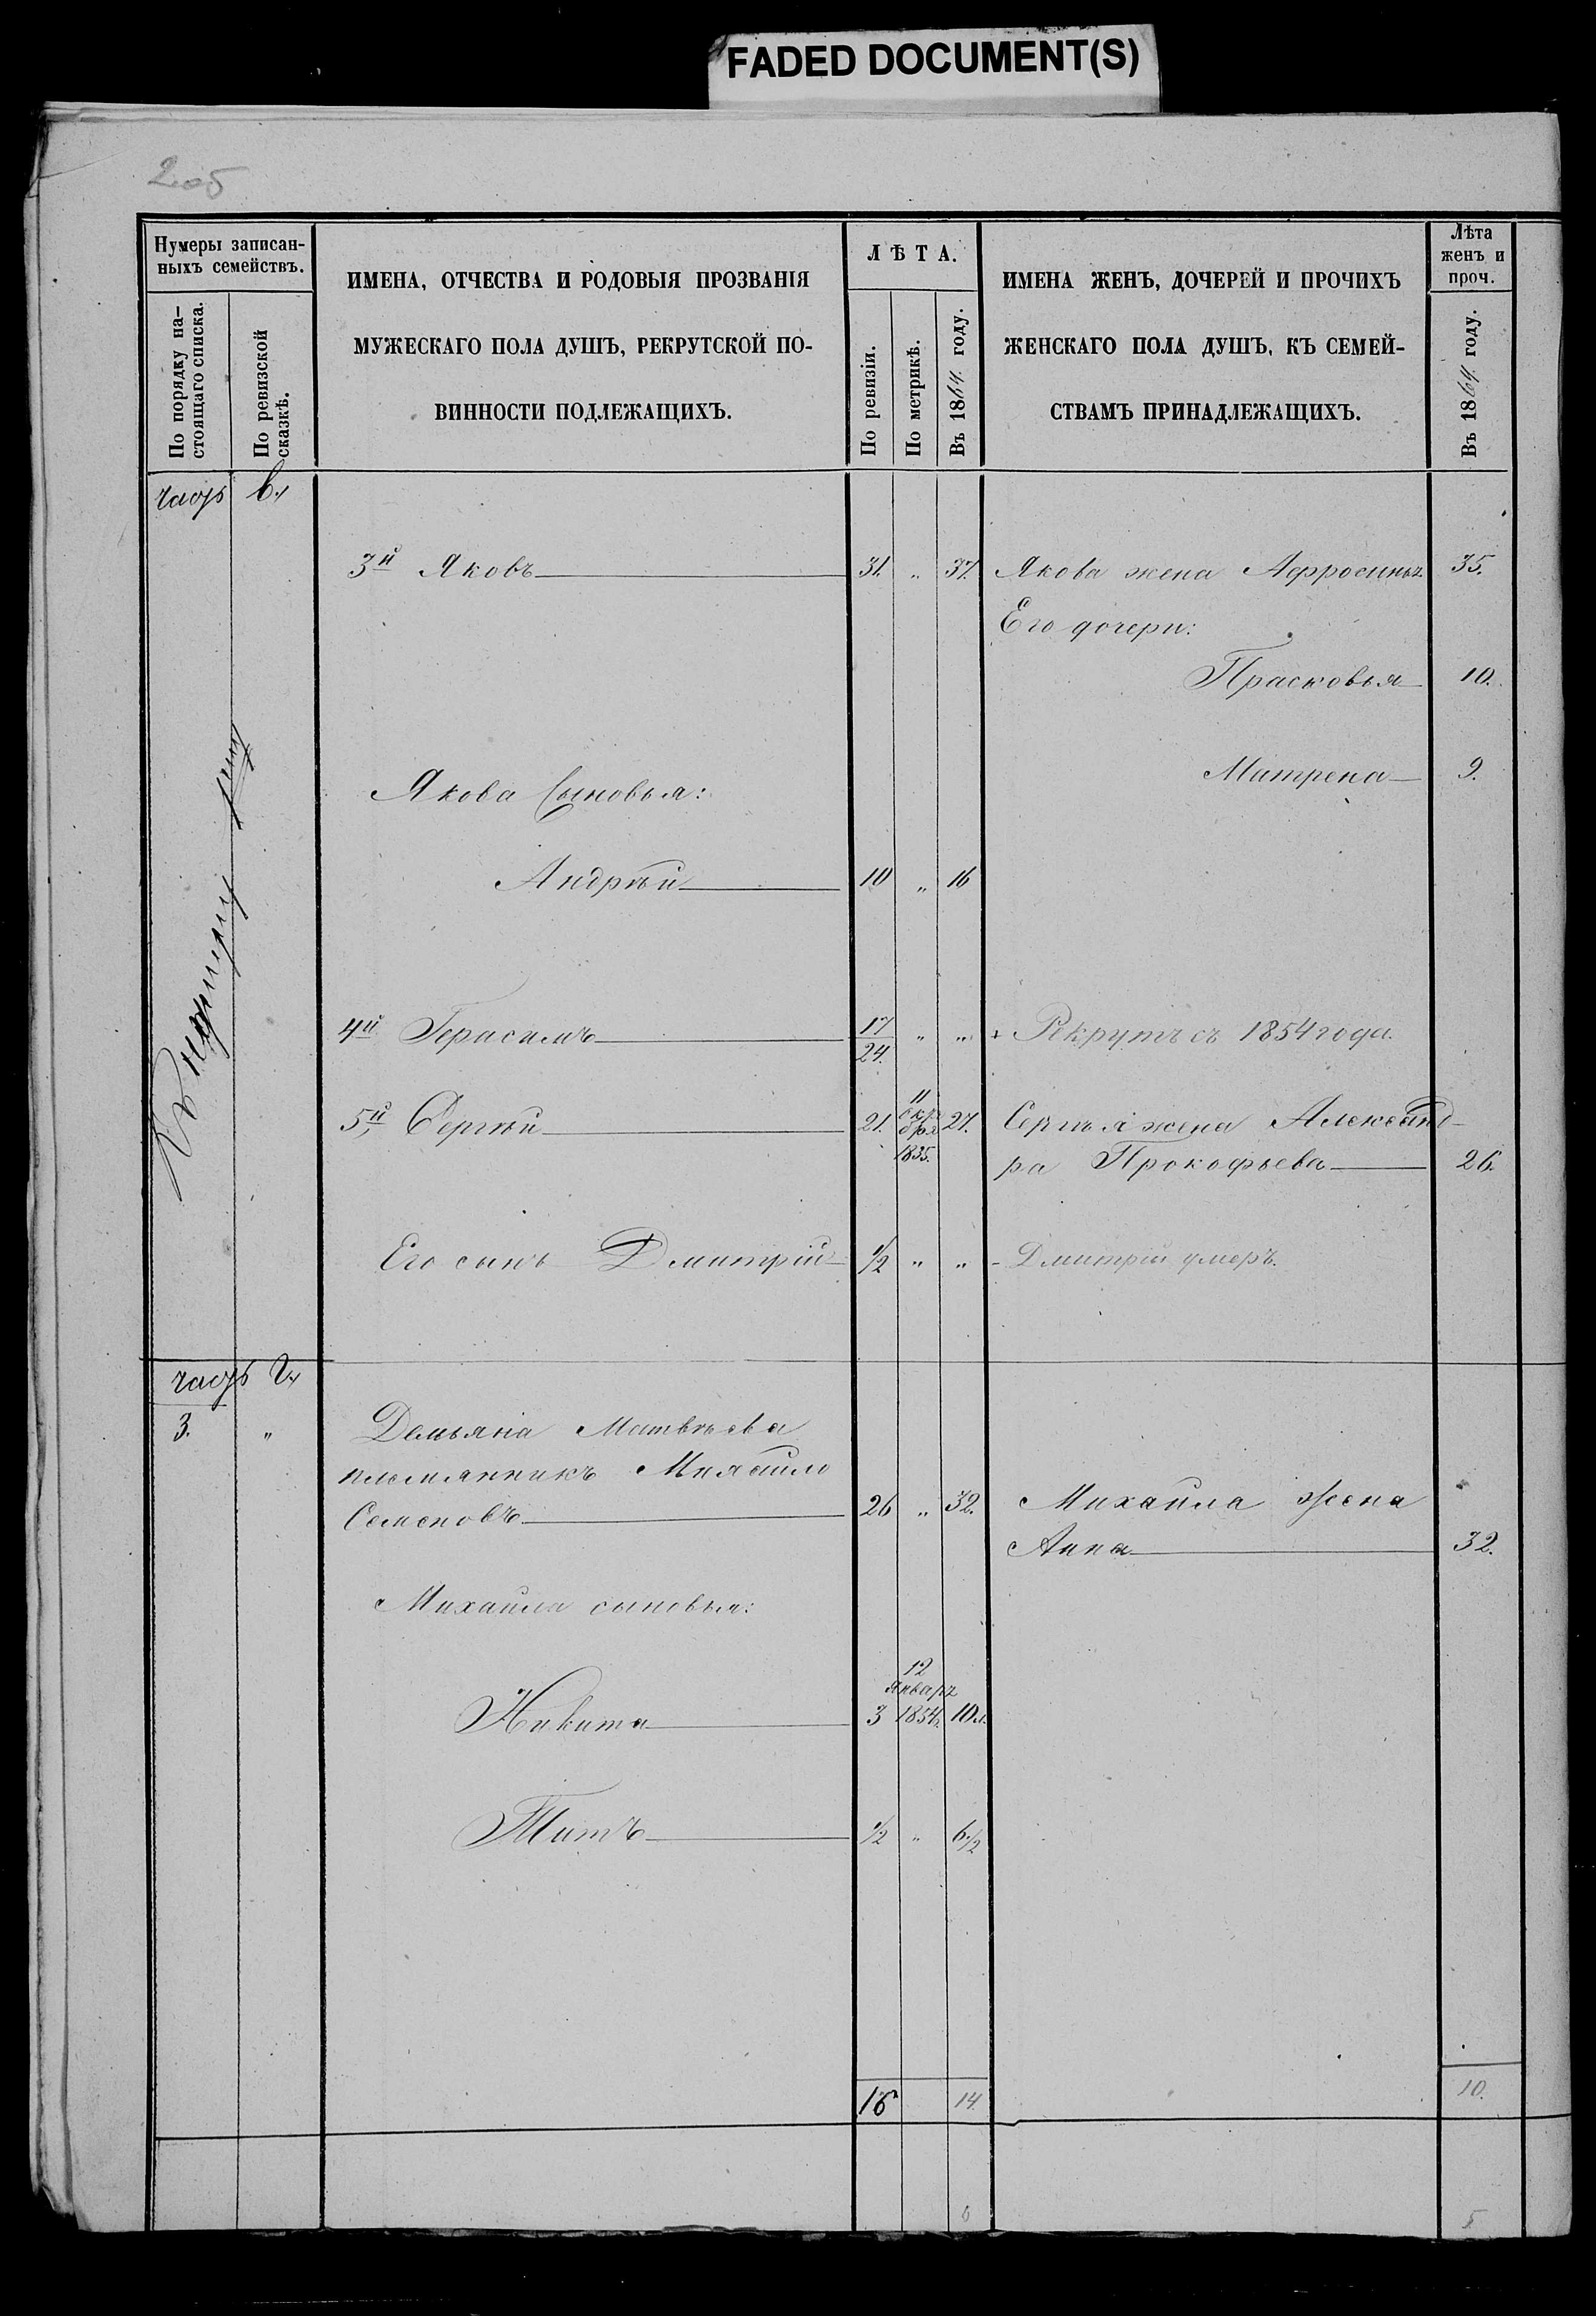 FADED DOCUMENT(S)
205
Нумеры записан-
ныхъ семействъ.
По порядку на-
стоящаго списка.
По ревизской
сказкѣ.
ИМЕНА, ОТЧЕСТВА И РОДОВЫЯ ПРОЗВАНІЯ
МУЖЕСКАГО ПОЛА ДУШЪ, РЕКРУТСКОЙ ПО-
ВИННОСТИ ПОДЛЕЖАЩИХЪ.
ЛѢТА.
По ревизіи.
По метрикѣ.
Въ 1864 году.
ИМЕНА ЖЕНЪ, ДОЧЕРЕЙ И ПРОЧИХЪ
ЖЕНСКАГО ПОЛА ДУШЪ, КЪ СЕМЕЙ-
СТВАМЪ ПРИНАДЛЕЖАЩИХЪ.
Лѣта
женъ и
проч.
Въ 1864 году.
часть в.,
3й Яковъ 31. „ 37. Якова жена Афросинья 35.
Его дочери:
Прасковья 10.
Матрена 9.
Якова Сыновья:
Андрѣй 10 „ 16
4й Герасимъ 17 „ „ Рекрутъ съ 1854 года.
24.
5й Сергѣй 21. 11 1835. 27. Сергѣя жена Александ-
ра Прокофьева 26.
Его сынъ Дмитрій 1/2 „ „ - Дмитрій умеръ.
часть г.,
3. „ Демьяна Матвѣева
племянникъ Михайло
Семеновъ 26 „ 32. Михайла жена
Анна 32.
Михайла сыновья:
12
январ
Никита 3 1854. 10.
Титъ 1/2 „ 6 1/2
16 14. 10.
6 5